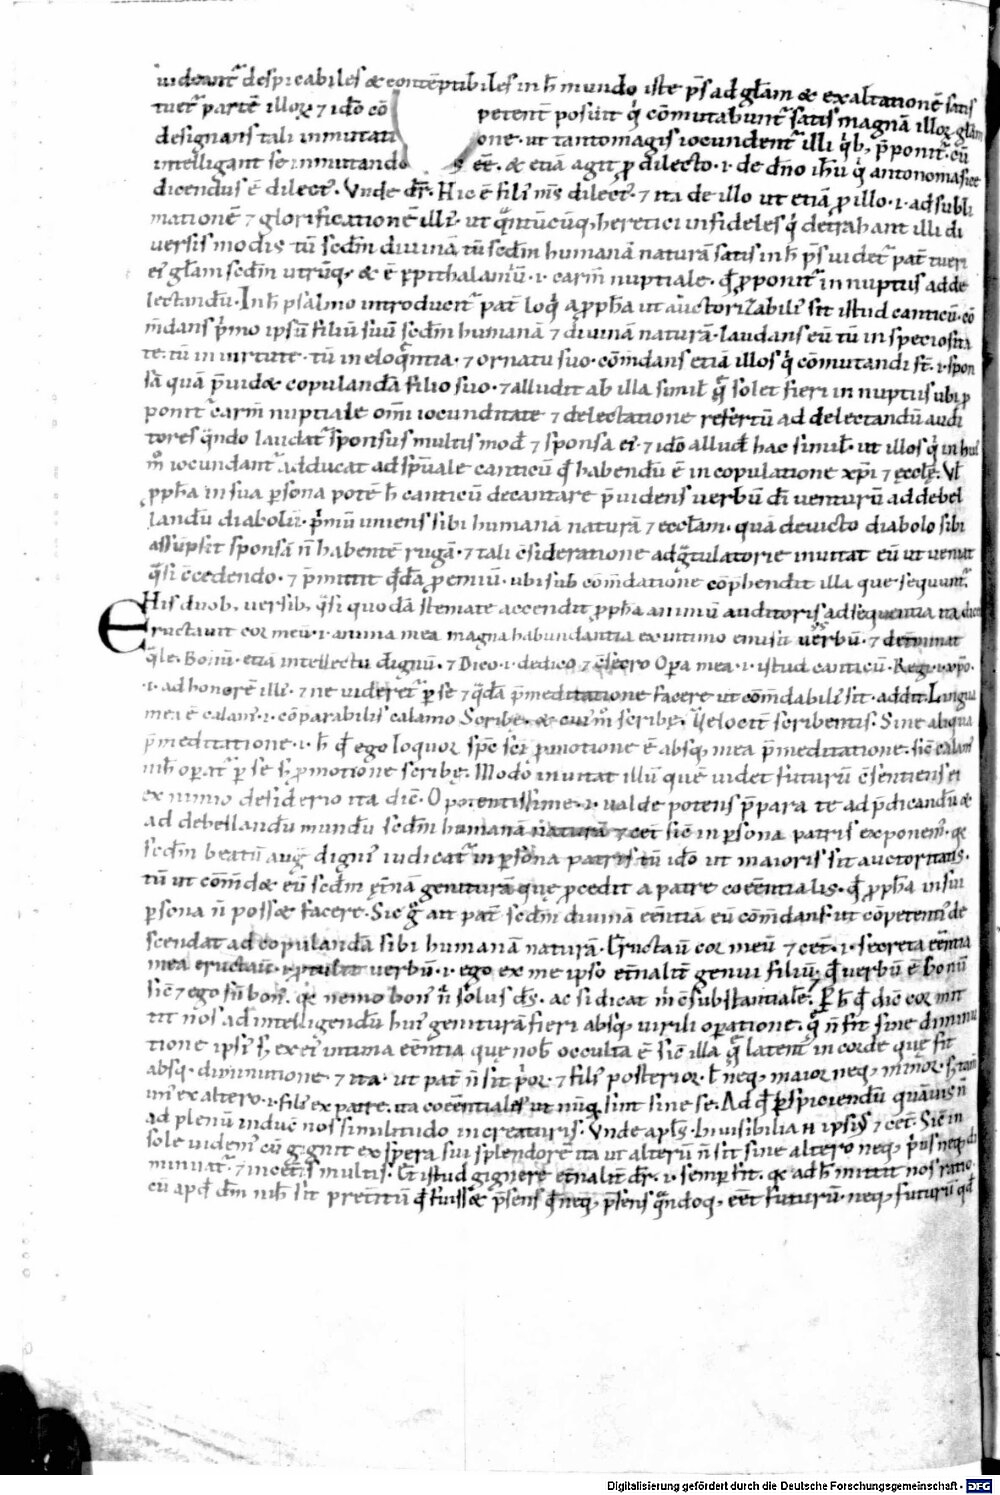 uideant᷑ despicabiles & contēptibiles in h̄ mundo iste p̄s ad gl̄am & exaltationē satis
tuet᷑ partē illoꝝ ⁊ ido cō petent᷑ posuit q̇ cōmutabunt᷑ satis magnā illoꝝ gl̄am
designans tali inmutati one. ut tantomagis iocundent᷑ illi q̇b; p̄ponit᷑. cū
intelligant se inmutando ee᷑. & etiā agit ꝓ dilecto .i. de dn̄o ih̄u q̇ antonomasice
dicendus ē dilect᷑. Vnde dr̄. Hic ē fili᷑ m̄s dilect᷑. ⁊ ita de illo ut etiā ꝓ illo .i. ad subli
mationē ⁊ glorificationē illi᷑. ut q̄ntūcūq; heretici infideles q̇ detrahant illi di
uersis modis tū scd̄m diuinā tū scd̄m humanā naturā satis in h̄ p̄s uidet᷑ pat᷑ tueri
ei᷑ gl̄am scd̄m utrūq; & ē epithalamiū .i. carm̄ nuptiale. qd̄ ꝓponit᷑ in nuptiis ad de
lectandū. In h̄ psalmo introducit᷑ pat᷑ loq̇ a ꝓph̄a ut auctorizabili᷑ sit istud canticū. cō
m̄dans p̄mo ipsū filiū suū scd̄m humanā ⁊ diuinā naturā. laudans eū tū in speciosita
te. tū in uirtute. tū in eloq̄ntia. ⁊ ornatu suo. cōm̄dans etiā illos q̇ cōmutandi st̄ .i. spon
sā quā p̄uid& copulandā filio suo. ⁊ alludit ab illa simil᷑ q̄ solet fieri in nuptiis ubi ꝓ
ponit᷑ carm̄ nuptiale om̄i iocunditate ⁊ delectatione refertū ad delectandū audi
tores q̄ndo laudat᷑ sponsus multis mod᷑ ⁊ sponsa ei᷑. ⁊ ido allud᷑ hac simil᷑. ut illos q̇ in hui᷑
m̊ iocundant᷑ adducat ad sp̄uale canticū qd̄ habendū ē in copulatione xp̄i ⁊ eccl̄ę. Vl᷑
ꝓph̄a in sua ꝑsona potē h̄ canticū decantare p̄uidens uerbū dī uenturū ad debel
landū diabolū. p̄mū uniens sibi humanā naturā ⁊ eccl̄am. quā deuicto diabolo sibi
assūpsit sponsā n̄ habentē rugā. ⁊ tali c̄sideratione adgr̄tulatorie inuitat eū ut ueniat
q̄si c̄cedendo. ⁊ p̄mittit q̄dā ꝓemiū. ubi sub cōm̄datione cōp̄hendit illa que sequunt᷑.
His duob; uersib; q̄si quodā stemate accendit ꝓph̄a animū auditoris ad sequentia ita dicens
Eructauit cor meū .i. anima mea magna habundantia ex intimo emisit uerbū. ⁊ det᷑minat
q̄le. Bonū. etiā intellectu dignū. ⁊ Dico .i. dedico ⁊ c̄secro Opera mea .i. istud canticū. Regi .i. xp̄o.
.i. ad honorē illi᷑. ⁊ ne uideret᷑ ꝑ se ⁊ q̄dā p̄meditatione facere ut cōm̄dabili᷑ sit. addit. Lingua
mea ē calam᷑ .i. cōparabilis calamo Scribę. & cui᷑ m̊ scribę. Velocit᷑ scribentis. Sine aliqua
p̄meditatione .i. h̄ qd̄ ego loquor sp̄c sc̄i ꝓmotione ē absq; mea p̄meditatione. sic̄ calam᷑
nih̄ oꝑat᷑ ꝑ se s; ꝓmotione scribę. Modo inuitat illū quē uidet futurū c̄sentiens ei
ex nimio desiderio ita dic̄. O potentissime .i. ualde potens p̄para te ad p̄dicandū &
ad debellandū mundū scd̄m humanā naturā ⁊ cet᷑ sic̄ in ꝑsona patris exponem᷑. qd̄
scd̄m beatū aug᷑ digni᷑ iudicat᷑ in ꝑsona patris tū ido ut maioris sit auctoritatis.
tū ut cōm̄d& eū scd̄m et̄nā geniturā que ꝓcedit a patre coēntialis. qd̄ ꝓph̄a in sui
ꝑsona n̄ poss& facere. Sic g᷑ ait pat᷑ scd̄m diuinā eēntiā eū cōm̄dans ut cōpetenti᷑ de
scendat ad copulandā sibi humanā naturā. Eructauit cor meū ⁊ cet᷑. .i. secreta eēntia
mea eructauit. .i. ꝓtulit uerbū .i. ego ex me ipso et᷑nalit᷑ genui filiū. qd̄ uerbū ē bonū
sic̄ ⁊ ego sū bon᷑. qd̄ nemo bon᷑ n̄ solus ds̄. ac si dicat m̄ c̄substantiale. Per h̄ qd̄ dic̄ cor mit
tit nos ad intelligendū hui᷑ geniturā fieri absq; uirili oꝑatione. q̄ n̄ fit sine diminu
tione ipsi᷑ s; ex ei᷑ intima eēntia que nob᷑ occulta ē sic̄ illa q̄ latent᷑ in corde que fit
absq; diminutione. ⁊ ita. ut pat᷑ n̄ sit p̄or. ⁊ fili᷑ posterior. l᷑ neq; maior neq; minor. s; tam̄
un᷑ ex altero .i. fili᷑ ex patre. ita coēntiales ut nūq̄ sint sine se. Ad qd̄ ꝑspiciendū quāuis n̄
ad plenū induc̄ nos similitudo in creaturis. Vnde apl̄s. Inuisibilia .n. ipsi᷑ ⁊ cet᷑. Sic̄ in
sole uidem᷑ cū gignit ex spera sui splendorē ita ut alterū n̄ sit sine altero neq; pri᷑ neq; di
minuat᷑. ⁊ in cet᷑is multis. Et istud gignere et᷑nalit᷑ dr̄. .i. semꝑ fit. qd̄ ad h̄ mittit nos ratio.
cū apd̄ dm̄ nih̄ sit pret᷑itū qd̄ fuiss& p̄sens qd̄ neq; p̄sens q̄ndoq; eēt futurū. neq; futurū qd̄
Digitalisierung gefördert durch die Deutsche Forschungsgemeinschaft - DFG